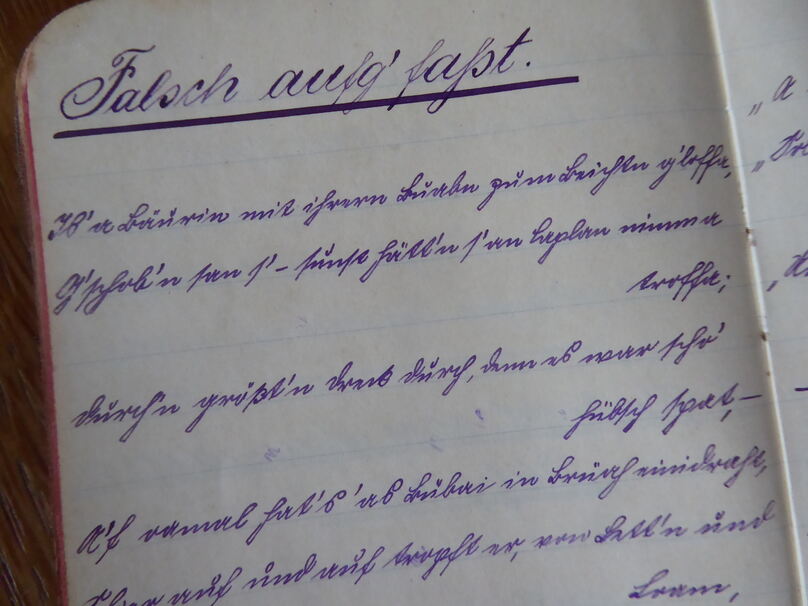 Falsch aufg'faßt.
Is' a Bäurin mit ihrern Buabn zum Beichtn g'loffa,
G'schob'n san s' – sunst hätt'n s' an Kaplan nimma
troffa;
durch'n größt'n Dreck durch, denn es war scho'
hübsch spat, –
A'f oamal hat's 'as Bübai in Brüah einidraht,
Über auf und auf tropft er, von Lett'n und
Loam,
„a
„
„